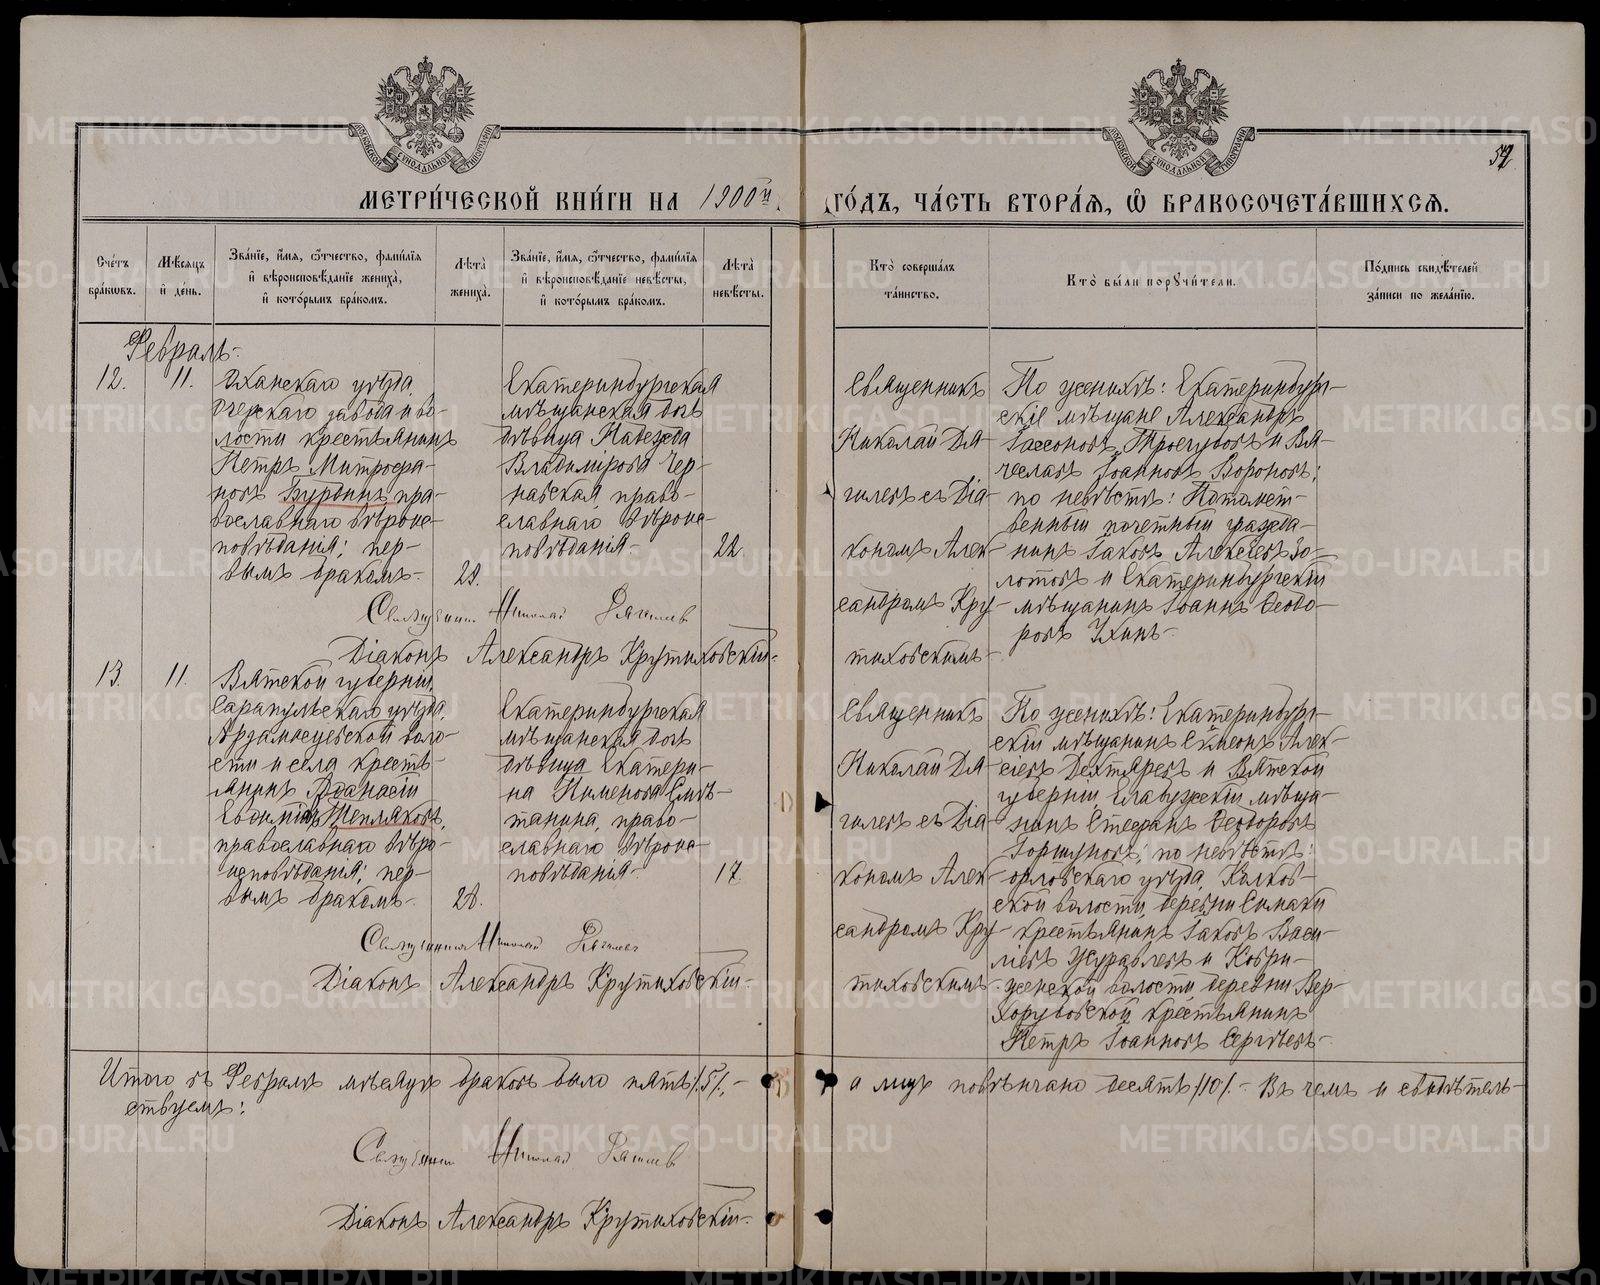 МОСКОВСКОЙ СѴНОДАЛЬНОЙ ТИПОГРАФІИ
МОСКОВСКОЙ СѴНОДАЛЬНОЙ ТИПОГРАФІИ
МЕТРИ́ЧЕСКОЙ КНИ́ГИ НА 1900й
ГО́ДЪ, ЧА́СТЬ ВТОРА́Я, Ѽ БРАКОСОЧЕТА́ВШИХСЯ.
Сче́тъ бра́ковъ.
Мѣ́сяцъ и҆ де́нь.
Зва́нїе, и҆́мя, ѻ҆́тчество, фамилїя и҆ вѣроисповѣ́данїе жениха̀, и҆ кото́рымъ бра́комъ.
Лѣта̀ жениха̀.
Зва́нїе, и҆́мя, ѻ҆́тчество, фамилїя и҆ вѣроисповѣ́данїе невѣ́сты, и҆ кото́рымъ бра́комъ.
Лѣта̀ невѣ́сты.
Кто̀ соверша́лъ та́инство.
Кто̀ бы́ли порꙋчи́тели.
По́дпись свидѣ́телей за́писи по жела́нїю.
Февраль
12.
11.
Оханскаго уѣзда,
Очерскаго завода и во-
лости крестьянинъ
Петръ Митрофа-
новъ Бурдинъ, пра-
вославнаго вѣроис-
повѣданія; пер-
вымъ бракомъ.
Екатеринбургская
мѣщанская дочь
дѣвица Надежда
Владимірова Чер-
навская, право-
славнаго вѣроис-
повѣданія.
22.
Священникъ
Николай Дя-
гилевъ съ Діа-
кономъ Алек-
сандромъ Кру-
тиховскимъ.
По женихѣ: Екатеринбург-
скіе мѣщане Александръ
Троегубовъ и Вя-
чеславъ Іоанновъ Вороновъ;
по невѣстѣ: Потомст-
венный почетный гражда-
нинъ Іаковъ Алексѣевъ Зо-
лотовъ и Екатеринбургскій
мѣщанинъ Іоаннъ Ѳеодо-
ровъ
Священникъ Николай Дягилевъ
Діаконъ Александръ Крутиховскій.
13.
11.
Вятской губерніи,
Сарапульскаго уѣзда,
воло-
сти и села кресть-
янинъ Аѳанасій
Евѳиміевъ Тепляковъ,
православнаго вѣро-
исповѣданія; пер-
вымъ бракомъ.
28.
Екатеринбургская
мѣщанская дочь
дѣвица Екатери-
на Пименова Смѣ-
танина, право-
славнаго вѣроис-
повѣданія.
17.
Священникъ
Николай Дя-
гилевъ съ Діа-
кономъ Алек-
сандромъ Кру-
тиховскимъ.
По женихѣ: Екатеринбург-
скій мѣщанинъ Сѵмеонъ Алек-
сіевъ Дехтяревъ и Вятской
губерніи, Елабужскій мѣща-
нинъ Стефанъ Ѳеодоровъ
Горшуновъ; по невѣстѣ:
Орловскаго уѣзда,
ской волости, деревни Симахи
крестьянинъ Іаковъ Васи-
ліевъ Журавлевъ и Кобри-
женской волости деревни Вер-
крестьянинъ
Петръ Іоанновъ Сергѣевъ.
Священникъ Николай Дягилевъ
Діаконъ Александръ Крутиховскій.
Итого въ Февралѣ мѣсяцѣ браковъ было пять /5/, а лицъ повѣнчано десять /10/. Въ чемъ и свидѣтель-
ствуемъ:
Священникъ Николай Дягилевъ
Діаконъ Александръ Крутиховскій.
METRIKI.GASO-URAL.RU